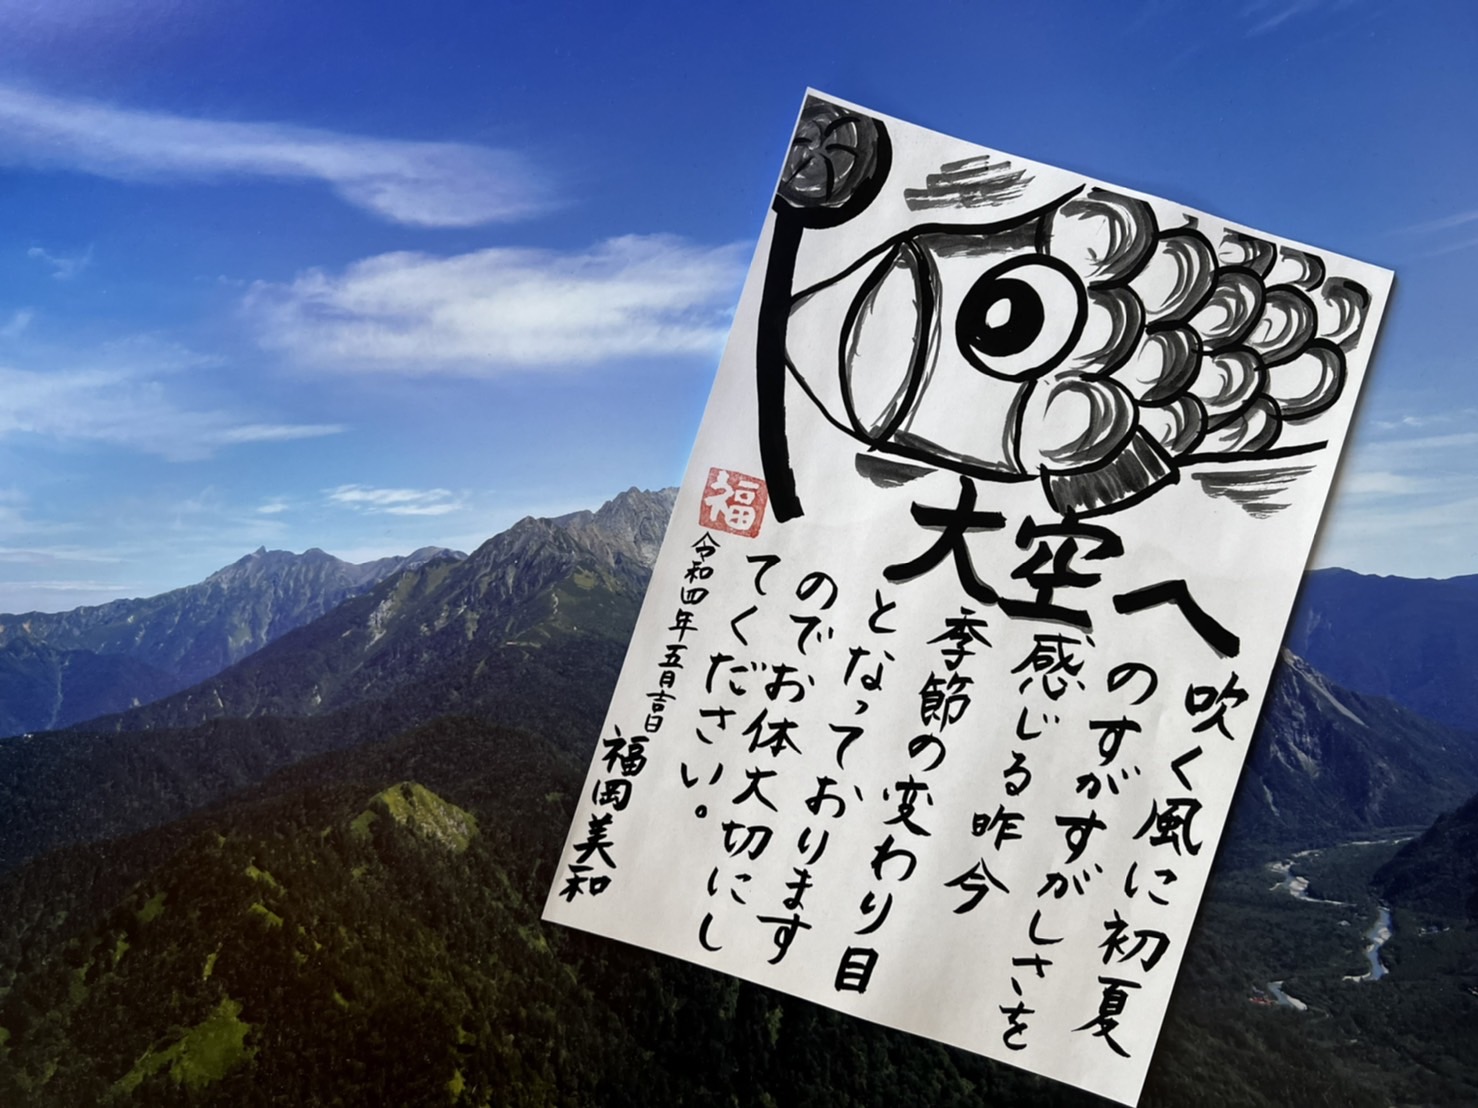 大空へ
吹く風に初夏
のすがすがしさを
感じる昨今
季節の変わり目
となっております
のでお体大切にし
てください。
令和四年五月吉日
福岡美和
福